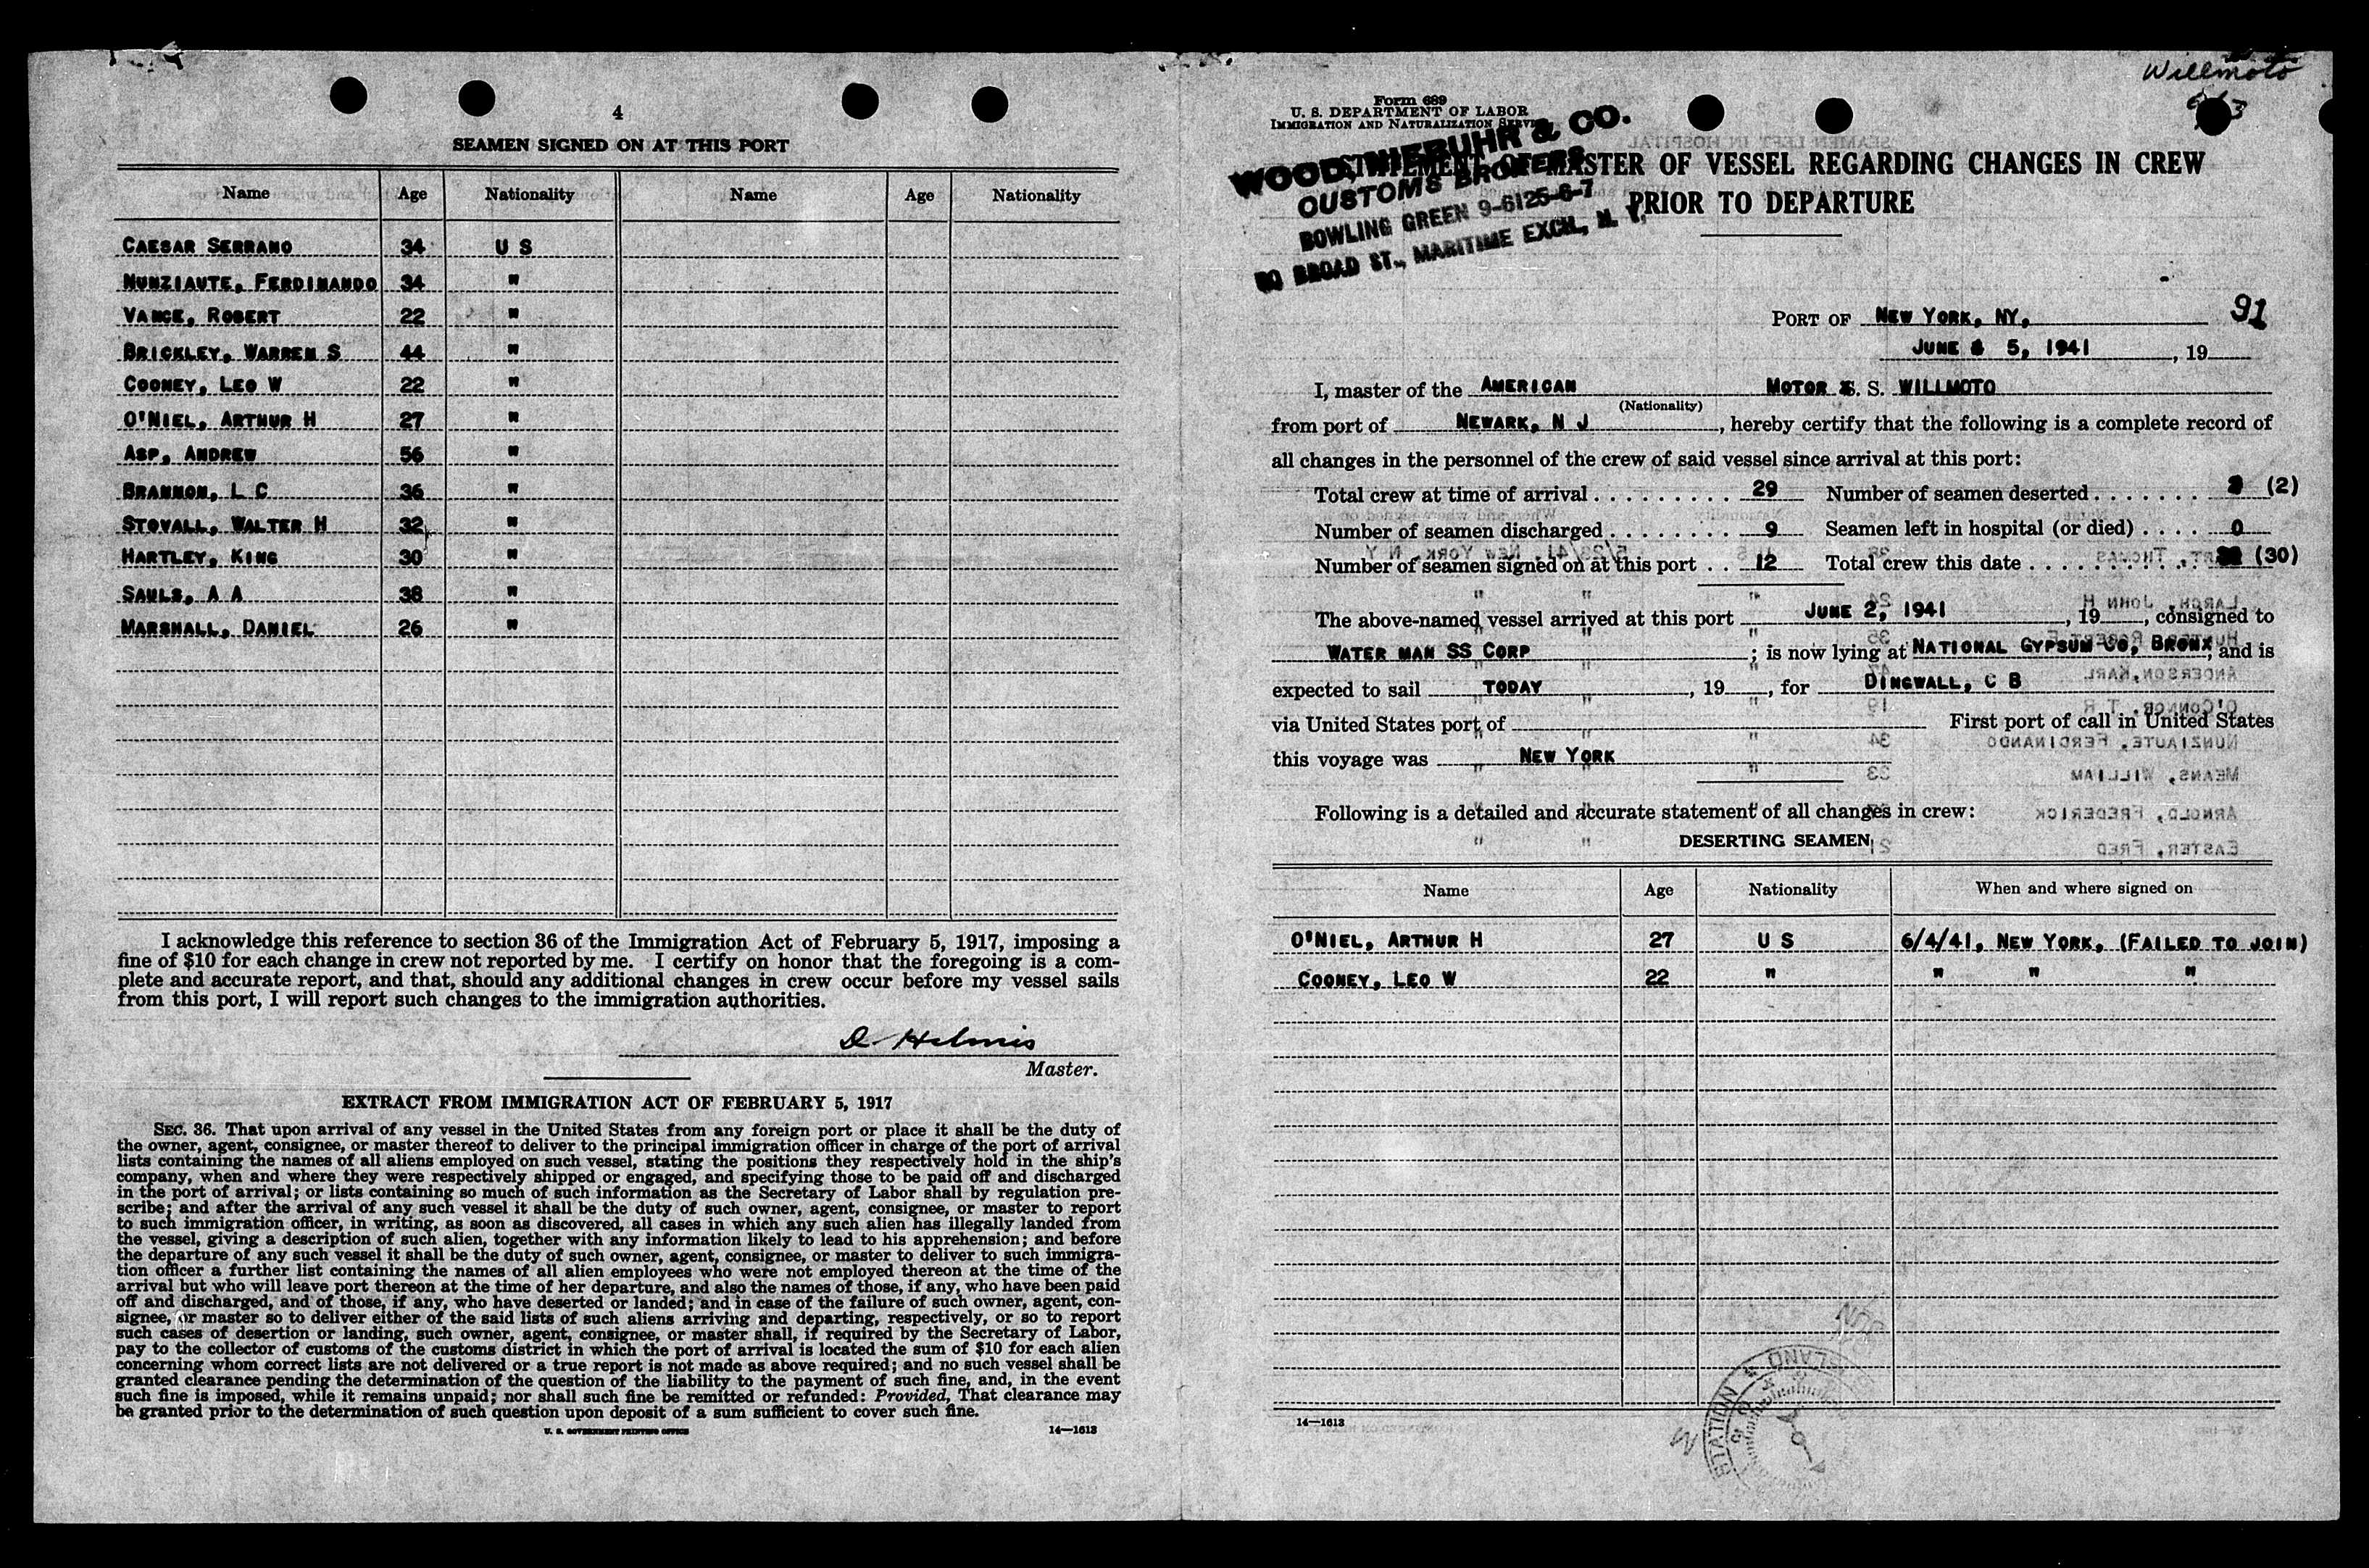 4
SEAMEN SIGNED ON AT THIS PORT
Name Age Nationality Name Age Nationality
CAESAR SERRANO 34 U S
NUNZIAUTE, FERDINANDO 34 "
VANCE, ROBERT 22 "
BRICKLEY, WARREN S 44 "
COONEY, LEO W 22 "
O'NIEL, ARTHUR H 27 "
ASP, ANDREW 56 "
BRANNON, L C 36 "
STOVALL, WALTER H 32 "
HARTLEY, KING 30 "
SAULS, A A 38 "
MARSHALL, DANIEL 26 "
I acknowledge this reference to section 36 of the Immigration Act of February 5, 1917, imposing a
fine of $10 for each change in crew not reported by me. I certify on honor that the foregoing is a com-
plete and accurate report, and that, should any additional changes in crew occur before my vessel sails
from this port, I will report such changes to the immigration authorities.
Master.
EXTRACT FROM IMMIGRATION ACT OF FEBRUARY 5, 1917
SEC. 36. That upon arrival of any vessel in the United States from any foreign port or place it shall be the duty of
the owner, agent, consignee, or master thereof to deliver to the principal immigration officer in charge of the port of arrival
lists containing the names of all aliens employed on such vessel, stating the positions they respectively hold in the ship's
company, when and where they were respectively shipped or engaged, and specifying those to be paid off and discharged
in the port of arrival; or lists containing so much of such information as the Secretary of Labor shall by regulation pre-
scribe; and after the arrival of any such vessel it shall be the duty of such owner, agent, consignee, or master to report
to such immigration officer, in writing, as soon as discovered, all cases in which any such alien has illegally landed from
the vessel, giving a description of such alien, together with any information likely to lead to his apprehension; and before
the departure of any such vessel it shall be the duty of such owner, agent, consignee, or master to deliver to such immigra-
tion officer a further list containing the names of all alien employees who were not employed thereon at the time of the
arrival but who will leave port thereon at the time of her departure, and also the names of those, if any, who have been paid
off and discharged, and of those, if any, who have deserted or landed; and in case of the failure of such owner, agent, con-
signee, or master so to deliver either of the said lists of such aliens arriving and departing, respectively, or so to report
such cases of desertion or landing, such owner, agent, consignee, or master shall, if required by the Secretary of Labor,
pay to the collector of customs of the customs district in which the port of arrival is located the sum of $10 for each alien
concerning whom correct lists are not delivered or a true report is not made as above required; and no such vessel shall be
granted clearance pending the determination of the question of the liability to the payment of such fine, and, in the event
such fine is imposed, while it remains unpaid; nor shall such fine be remitted or refunded: Provided, That clearance may
be granted prior to the determination of such question upon deposit of a sum sufficient to cover such fine.
U. S. GOVERNMENT PRINTING OFFICE 14—1613
Willmoto
Form 689
U. S. DEPARTMENT OF LABOR
IMMIGRATION AND NATURALIZATION SERVICE
WOOD, NIEBUHR & CO.
CUSTOMS BROKERS
BOWLING GREEN 9-6125-6-7
BROAD ST., MARITIME EXCH., N. Y.
STATEMENT OF MASTER OF VESSEL REGARDING CHANGES IN CREW
PRIOR TO DEPARTURE
PORT OF NEW YORK, NY, 91
JUNE 5, 1941, 19
I, master of the AMERICAN MOTOR S. S. WILLMOTO
(Nationality)
from port of NEWARK, N J, hereby certify that the following is a complete record of
all changes in the personnel of the crew of said vessel since arrival at this port:
Total crew at time of arrival 29 Number of seamen deserted (2)
Number of seamen discharged 9 Seamen left in hospital (or died) 0
Number of seamen signed on at this port 12 Total crew this date (30)
The above-named vessel arrived at this port JUNE 2, 1941, 19, consigned to
WATER MAN SS CORP; is now lying at NATIONAL GYPSUM CO, BRONX, and is
expected to sail TODAY, 19, for DINGWALL, C B
via United States port of First port of call in United States
this voyage was NEW YORK
Following is a detailed and accurate statement of all changes in crew:
DESERTING SEAMEN
Name Age Nationality When and where signed on
O'NIEL, ARTHUR H 27 U S 6/4/41, NEW YORK, (FAILED TO JOIN)
COONEY, LEO W 22 " " " "
14—1613